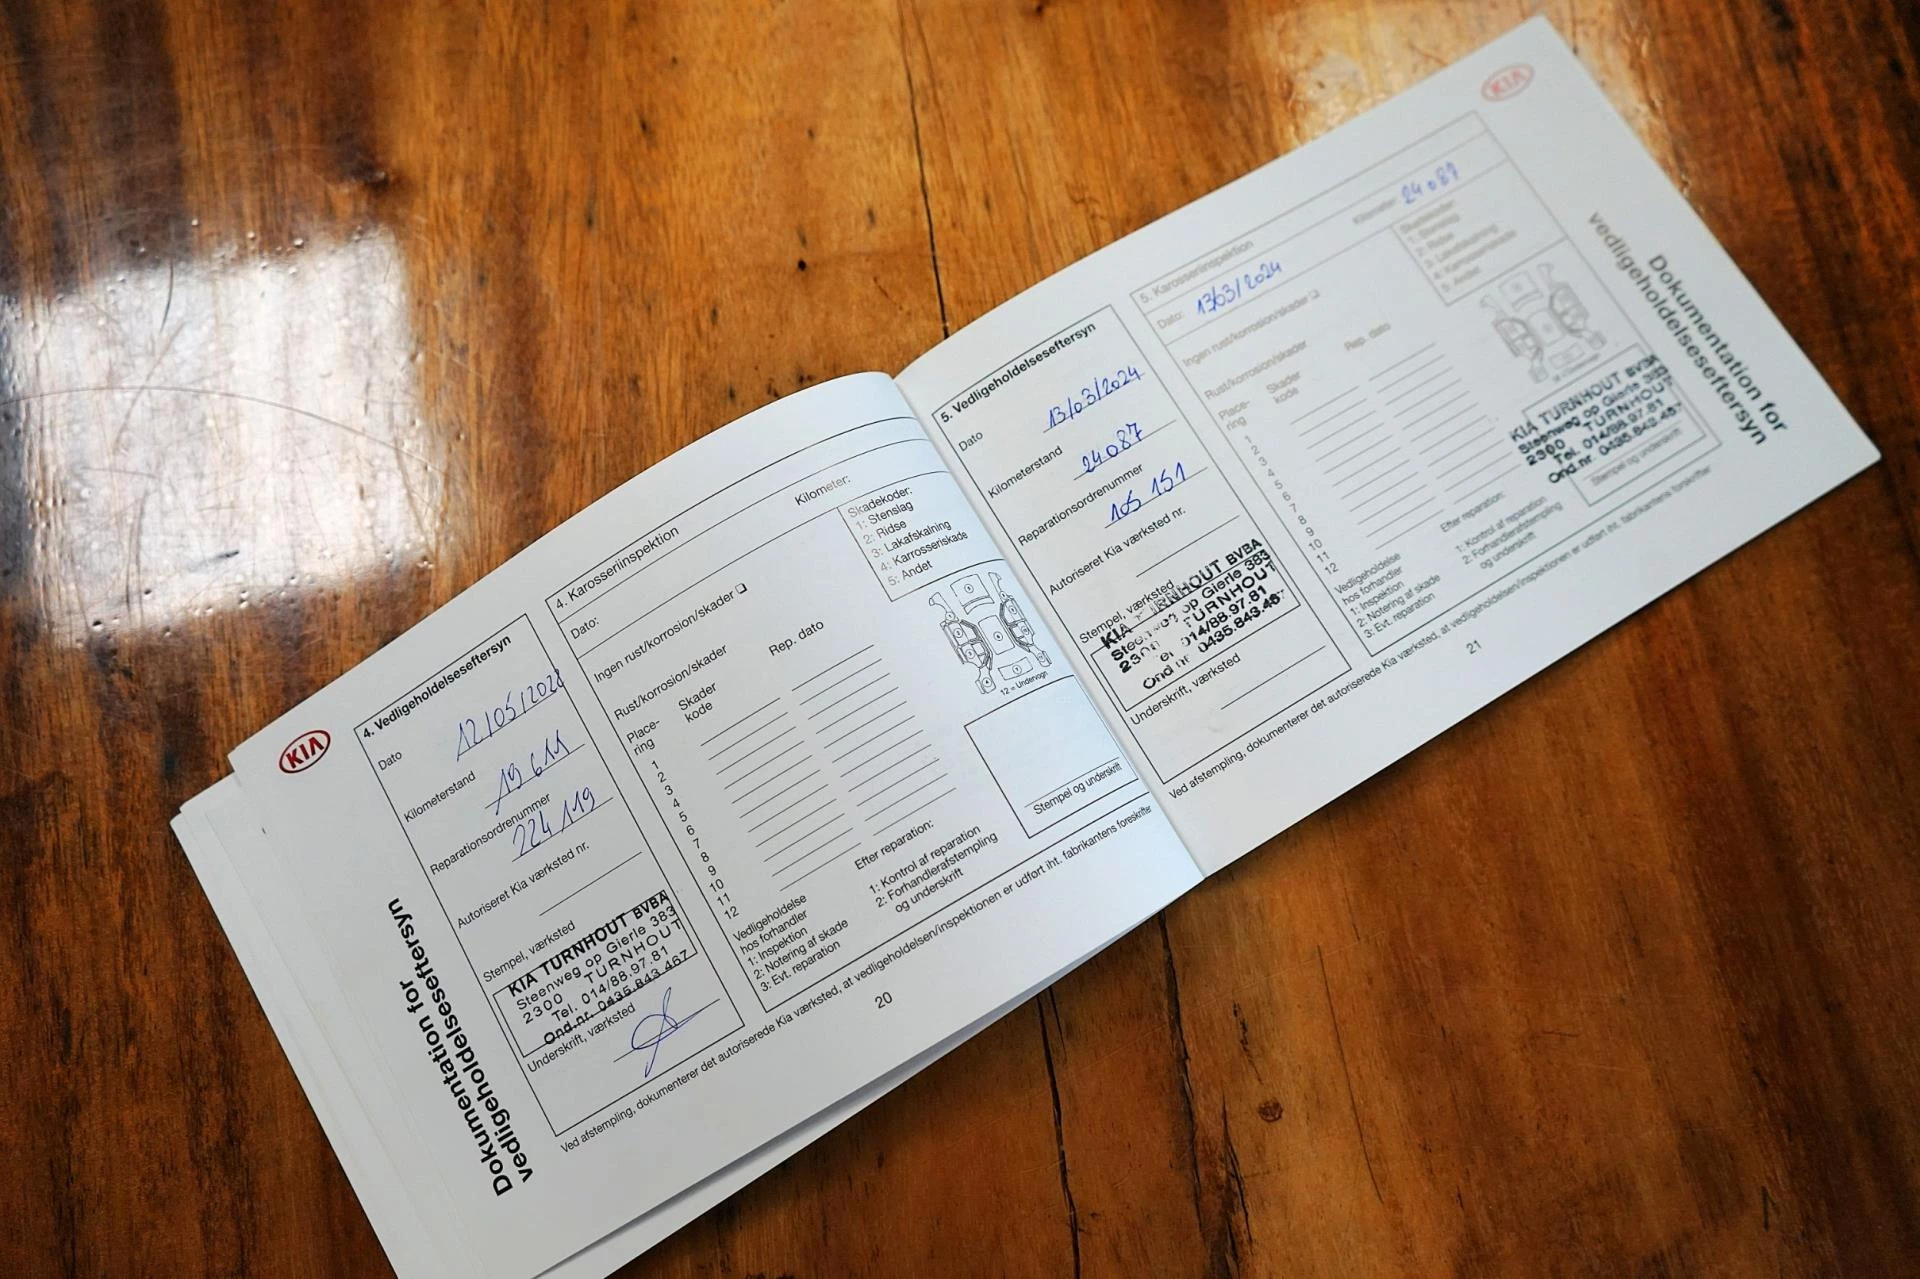 KIA
Dokumentation for
vedligeholdelseseftersyn
4. Vedligeholdelseseftersyn
Dato 12/05/2022
Kilometerstand 19 611
Reparationsordrenummer
224 119
Autoriseret Kia værksted nr.
Stempel, værksted
KIA TURNHOUT BVBA
Steenweg op Gierle 383
2300 - TURNHOUT
Tel. 014/88.97.81
Ond.nr. 0435.843.467
Underskrift, værksted
4. Karosseriinspektion
Dato:
Kilometer:
Ingen rust/korrosion/skader
Rust/korrosion/skader
Place-
ring
Skader
kode
Rep. dato
1
2
3
4
5
6
7
8
9
10
11
12
Skadekoder:
1: Stenslag
2: Ridse
3: Lakafskalning
4: Karrosseriskade
5: Andet
12 = Undervogn
Stempel og underskrift
Vedligeholdelse
hos forhandler
1: Inspektion
2: Notering af skade
3: Evt. reparation
Efter reparation:
1: Kontrol af reparation
2: Forhandlerafstempling
og underskrift
Ved afstempling, dokumenterer det autoriserede Kia værksted, at vedligeholdelsen/inspektionen er udført iht. fabrikantens foreskrifter
20
5. Vedligeholdelseseftersyn
Dato 13/03/2024
Kilometerstand 24087
Reparationsordrenummer
105 151
Autoriseret Kia værksted nr.
Stempel, værksted
KIA TURNHOUT BVBA
Steenweg op Gierle 383
2300 TURNHOUT
014/88.97.81
Ond nr 0435.843.467
Underskrift, værksted
5. Karosseriinspektion
Dato: 13/03/2024
Kilometer: 24087
Ingen rust/korrosion/skader
Rust/korrosion/skader
Place-
ring
Skader
kode
Rep. dato
1
2
3
4
5
6
7
8
9
10
11
12
Skadekoder:
1: Stenslag
2: Ridse
3: Lakafskalning
4: Karrosseriskade
5: Andet
KIA TURNHOUT BVBA
Steenweg op Gierle 383
2300 TURNHOUT
Tel. 014/88.97.81
Ond.nr. 0435.843.467
Stempel og underskrift
Vedligeholdelse
hos forhandler
1: Inspektion
2: Notering af skade
3: Evt. reparation
Efter reparation:
1: Kontrol af reparation
2: Forhandlerafstempling
og underskrift
Ved afstempling, dokumenterer det autoriserede Kia værksted, at vedligeholdelsen/inspektionen er udført iht. fabrikantens forskrifter
21
KIA
Dokumentation for
vedligeholdelseseftersyn